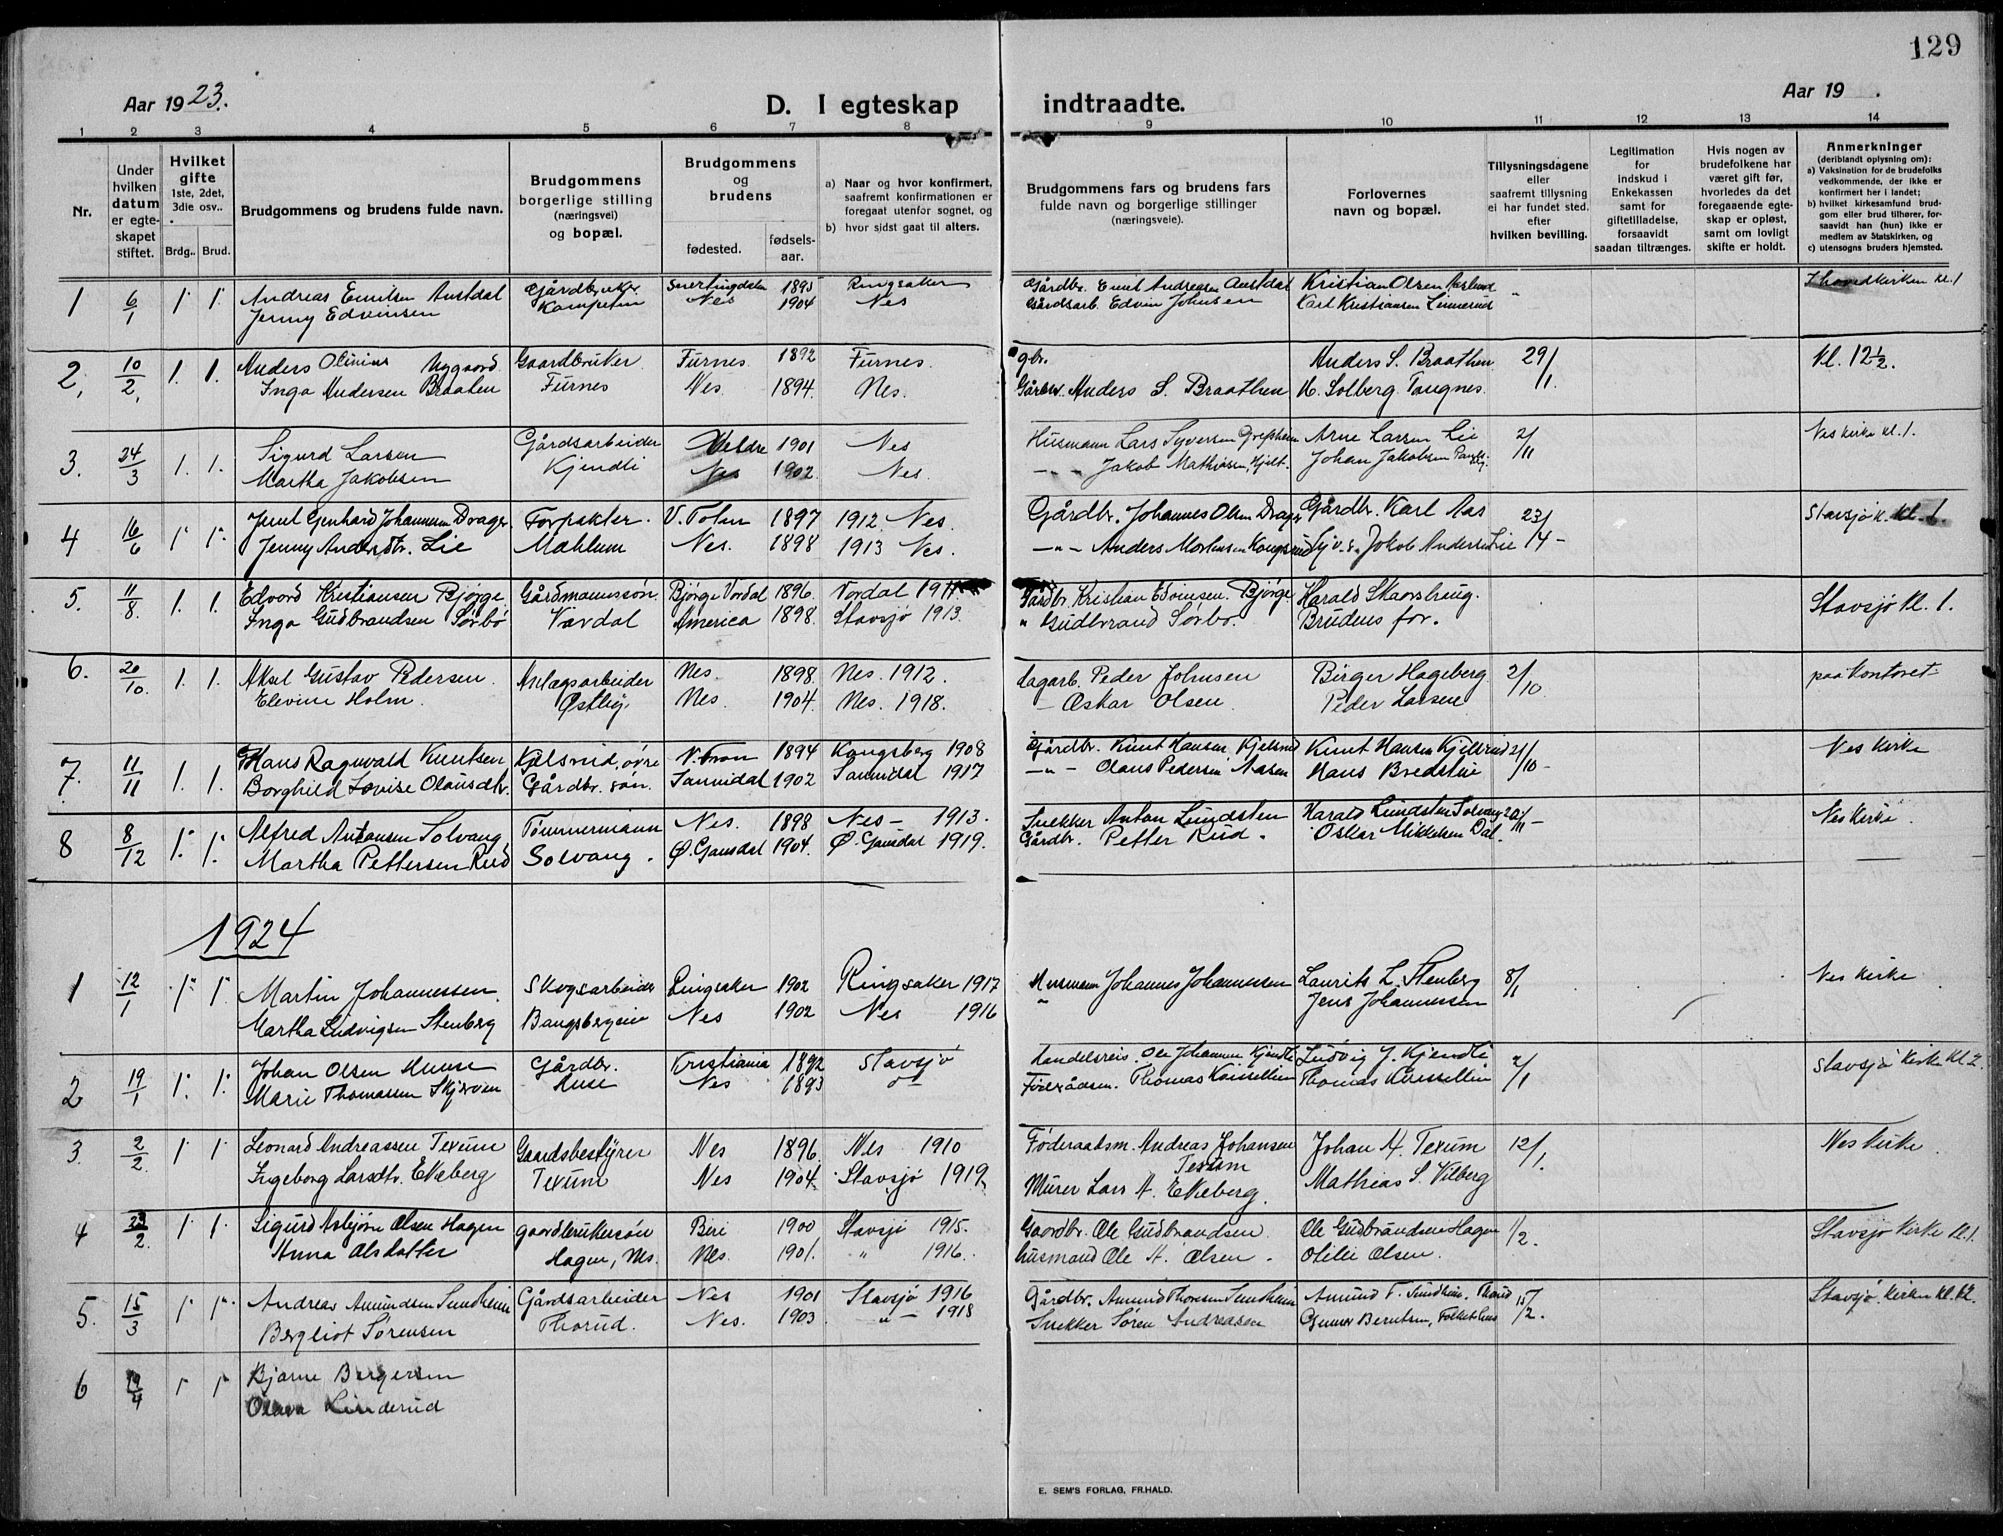 129
Aar 1923.
D. I egteskap
indtraadte.
Aar 19 .
1 2 3 4 5 6 7 8 9 10 11 12 13 14
Nr.
Under hvilken datum er egteskapet stiftet.
Hvilket gifte
1ste, 2det, 3die osv..
Brdg.. Brud.
Brudgommens og brudens fulde navn.
Brudgommens borgerlige stilling (næringsvei) og bopæl.
Brudgommens og brudens
fødested. fødsels-aar.
a) Naar og hvor konfirmert, saafremt konfirmationen er foregaat utenfor sognet, og
b) hvor sidst gaat til alters.
Brudgommens fars og brudens fars fulde navn og borgerlige stillinger (næringsveie).
Forlovernes navn og bopæl.
Tillysningsdagene eller saafremt tillysning ei har fundet sted, efter hvilken bevilling.
Legitimation for indskud i Enkekassen samt for giftetilladelse, forsaavidt saadan tiltrænges.
Hvis nogen av brudefolkene har været gift før, hvorledes da det foregaaende egteskap er opløst, samt om lovligt skifte er holdt.
Anmerkninger
(deriblandt oplysning om):
a) Vaksination for de brudefolks vedkommende, der ikke er konfirmert her i landet;
b) hvilket kirkesamfund brudgom eller brud tilhører, forsaavidt han (hun) ikke er medlem av Statskirken, og
c) utensogns bruders hjemsted.
1 6/1 1. 1. Andreas Emilsen Austdal Gårdbruker Snertingdalen 1895 Ringsaker Gårdbr. Emil Andreasen Austdal Kristian Olsen " I hovedkirken kl. 1
Jenny Edvinsen Nes 1904 Nes Gårdsarb. Edvin Johnsen Karl Kristiansen Linnerud
2, 10/2, 1. 1. Anders Olinius Nygaard Gaardbruker Furnes 1892 Furnes. gbr. Anders S. Braathen 29/1. Kl. 12½.
Inga Andersen Braaten Furnes Nes. 1894. Nes. Anders S. Braathen H. Solberg Tangnes.
3. 24/3 1. 1. Sigurd Larsen Gårdsarbeider Veldre 1901 Nes Husmann Lars Syversen Arne Larsen Lie 2/11 Nes kirke kl. 1.
Martha Jakobsen Kjendli Nes 1902 Nes. — " — Jakob Mathisen, Hjelt. Johan Jakobsen
4 16/6 1. 1. Johannesen Drager. Forpakter. V. Toten 1897 1912. Nes. Gårdbr. Johannes Olsen Drager Gårdbr. Karl Aas 23/4 - Stavsjø k. kl. 1.
Jenny Andersdtr. Lie Mæhlum Nes. 1898 1913 Nes. — " — Anders Jakob Andersen Lie
5. 11/8 1. 1. Edvard Kristiansen Bjørge Gårdmannssøn. Bjørge Vardal 1896. Vardal Gårdbr. Kristian Bjørge. Harald Skarstrug. Stavsjø kl. 1.
Inga Gudbrandsen Sørbø Vardal America 1898. Stavsjø 1913. " Gudbrand Sørbø. Brudens far.
6. 20/10. 1. 1. Aksel Gustav Pedersen. Anlægsarbeider Nes. 1898. Nes. 1912. Peder Johnsen Birger Hageberg 2/10 paa kontoret
Elevine Holm. Østby. Nes. 1904. Nes. 1918. — Oskar Olsen Peder Larsen
7. 11/11 1. 1. Hans Ragnvald Knutsen Kjelsrud, øvre 1894 Kongsberg 1908 Gårdbr. Knut Hansen Kjelsrud Knut Hansen Kjelsrud 21/10 - Nes kirke
Borghild Lovise Olausdtr. Gårdbr. søn. Sannidal 1902 Sannidal 1917 — " — Olaus Pedersen Aasen Hans Bredslie
8 8/12 1. 1. Alfred Antonsen Solvang Tømmermann Nes. 1898 Nes — 1913. Snekker Anton Lundsten Harald Lundsten Solvang 20/11 — Nes kirke.
Martha Pettersen Rud Solvang. Ø. Gausdal 1904. Ø. Gausdal 1919. Gårdbr. Petter Rud. Oskar Mikkelsen Dal.
1924
1 12/1 1. 1. Martin Johannessen. Skogsarbeider Ringsaker 1902 Ringsaker 1917 Husmann Johannes Johannessen Laurits L. Stenberg 8/1 Nes kirke
Martha Ludvigsen Stenberg Bangsbergeie Nes 1902 Nes 1916 " Jens Johannessen
2 19/1 1. 1. Johan Olsen Huuse Gårdbr. Kristiania 1892 Stavsjø Handelsreis. Ole Johannesen Kjendli Ludvig J. Kjendli 2/1 Stavsjø kirke kl. 2.
Marie Thomassen Skjerven Huse Nes 1893 Thomas Thomas
3. 2/2. 1 1 Leonard Andreassen Texum Gaardsbestyrer Nes 1896. Nes 1910 Føderaadsm. Andreas Johansen Texum Johan A. Texum 12/1. Nes kirke.
Ingeborg Larsdtr. Ekeberg Texum Nes 1904. Stavsjø 1919. Murer Lars A. Ekeberg. Mathias S. Vilberg
4 23/2. 1 1. Sigurd Asbjørn Olsen Hagen gaardbrukersøn Biri 1900 Stavsjø 1915. Gaardbr. Ole Gudbrandsen. Ole Gudbrandsen Hagen 1/2. Stavsjø kirke kl. 1.
Anna Olsdatter Hagen, Nes. Nes. 1901. " 1916. husmand Ole A. Olsen. Otilie Olsen.
5. 15/3 1 1. Andreas Amundsen Sundheim Gårdsarbeider Nes 1901 Stavsjø 1916 Gårdbr. Amund Thoresen Sundheim Amund T. Sundheim, Thorud 15/2. Stavsjø kirke kl.
Bergliot Sørensen Thorud. Nes. 1903. — " — 1918 Snekker Søren Andreasen Gunnar Berntsen, Folkets hus
6 1 1 Bjarne Bergersen
Olava Linderud
E. SEM'S FORLAG, FR.HALD.